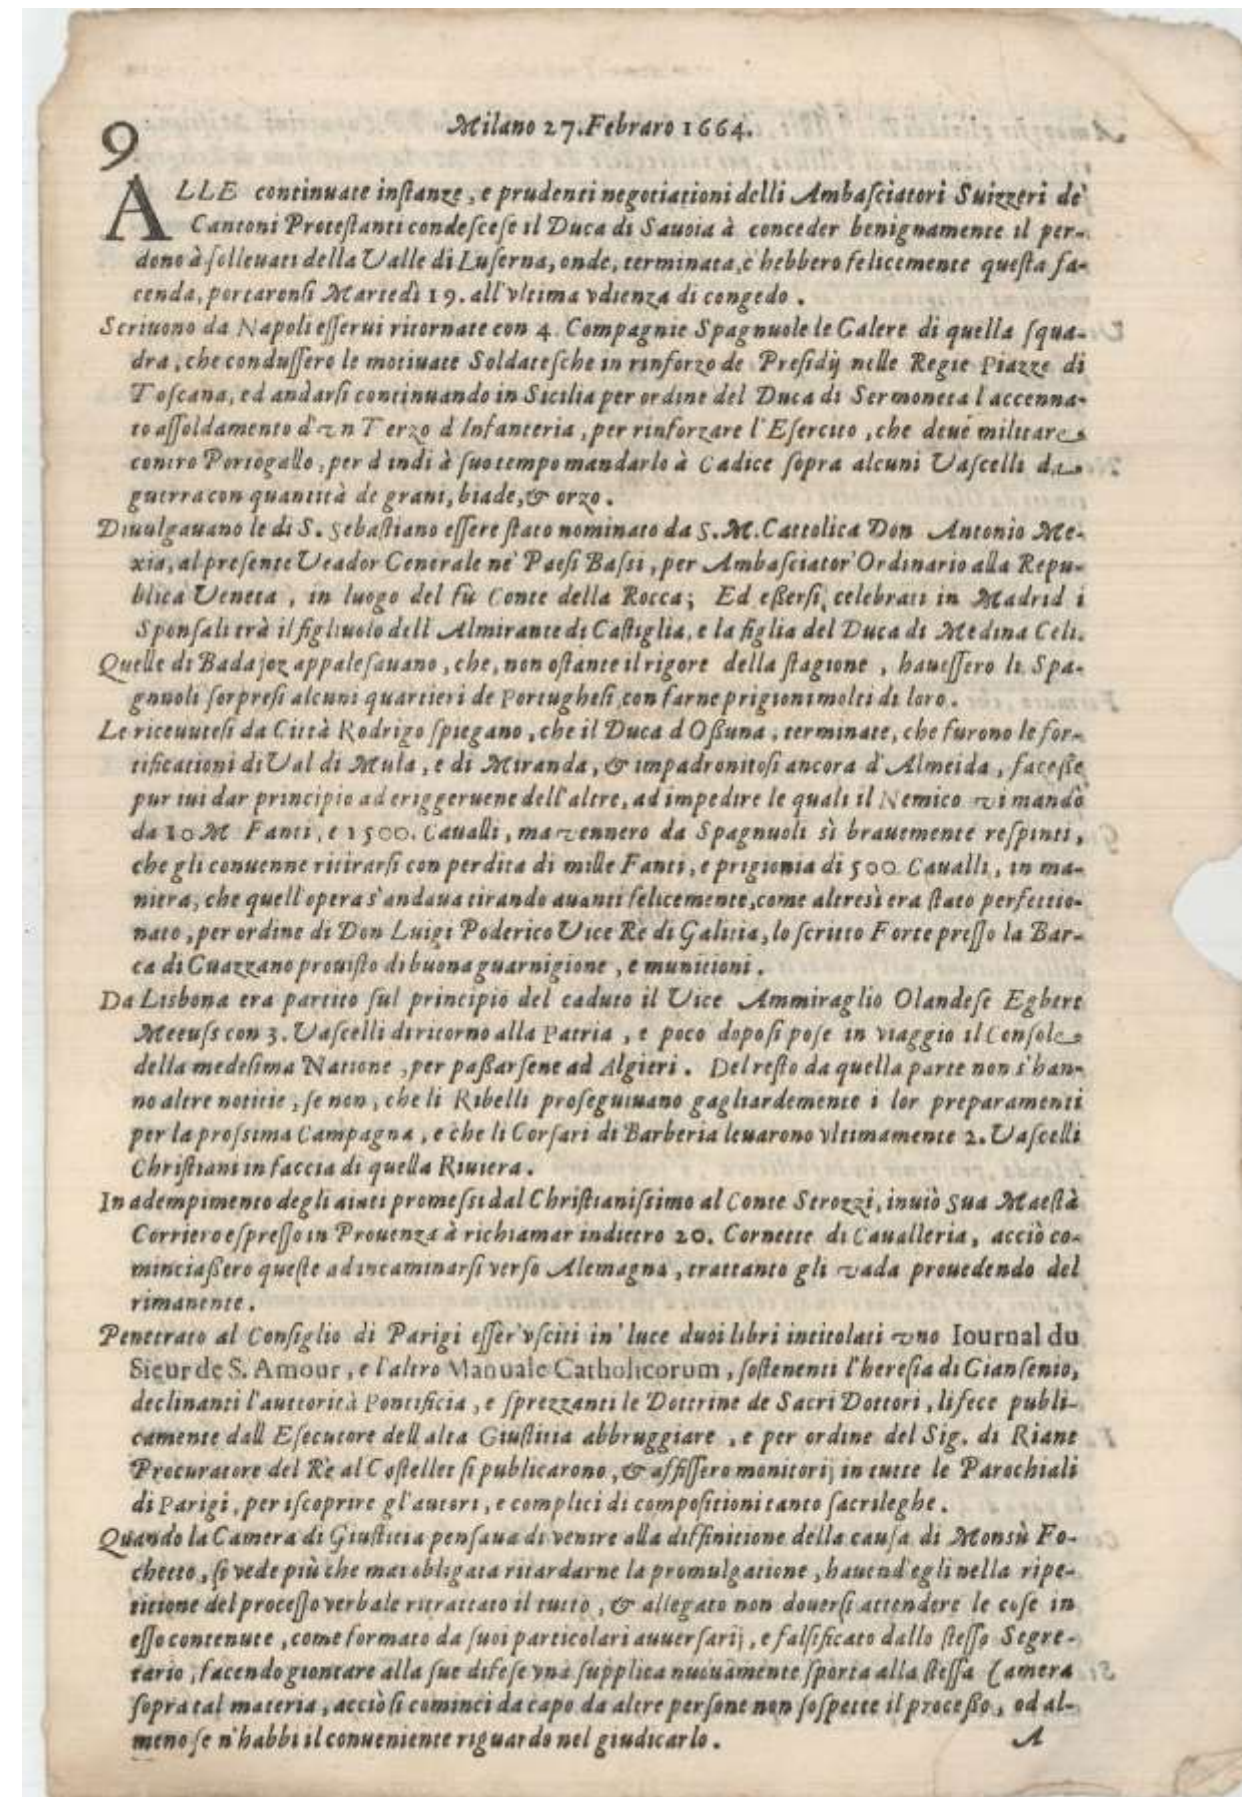 9
Milano 27. Febraro 1664.
ALLE continuate instanze, e prudenti negotiationi delli Ambasciatori Suizzeri de'
Cantoni Protestanti condescese il Duca di Sauoia à conceder benignamente il per-
dono à solleuati della Valle di Luserna, onde, terminata, c'hebbero felicemente questa fa-
cenda, portaronsi Martedì 19. all'vltima vdienza di congedo.
Scriuono da Napoli esserui ritornate con 4. Compagnie Spagnuole le Galere di quella squa-
dra, che condussero le motiuate Soldatesche in rinforzo de Presidij nelle Regie Piazze di
Toscana, ed andarsi continuando in Sicilia per ordine del Duca di Sermoneta l accenna-
to assoldamento d'vn Terzo d Infanteria, per rinforzare l'Esercito, che deue militare
contro Portogallo, per d indi à suo tempo mandarlo à Cadice sopra alcuni Vascelli da
guerra con quantità de grani, biade, & orzo.
Diuulgauano le di S. Sebastiano essere stato nominato da S. M. Cattolica Don Antonio Me-
xia, al presente Veador Generale ne' Paesi Bassi, per Ambasciator Ordinario alla Repu-
blica Veneta, in luogo del fù Conte della Rocca; Ed essersi celebrati in Madrid i
Sponsali trà il figliuolo dell Almirante di Castiglia, e la figlia del Duca di Medina Celi.
Quelle di Badajoz appalesauano, che, non ostante il rigore della stagione, hauessero li Spa-
gnuoli sorpresi alcuni quartieri de Portughesi con farne prigioni molti di loro.
Le riceuutesi da Città Rodrigo spiegano, che il Duca d Ossuna, terminate, che furono le for-
tificationi di Val di Mula, e di Miranda, & impadronitosi ancora d'Almeida, facesse
pur iui dar principio ad eriggeruene dell'altre, ad impedire le quali il Nemico vi mandò
da 10 M Fanti, e 1500. Caualli, ma vennero da Spagnuoli sì brauemente respinti,
che gli conuenne ritirarsi con perdita di mille Fanti, e prigionia di 500 Caualli, in ma-
niera, che quell'opera s'andaua tirando auanti felicemente, come altresì era stato perfettio-
nato, per ordine di Don Luigi Poderico Vice Rè di Galitia, lo scritto Forte presso la Bar-
ca di Guazzano prouisto di buona guarnigione, e munitioni.
Da Lisbona era partito sul principio del caduto il Vice Ammiraglio Olandese Egbert
Meeuss con 3. Vascelli di ritorno alla Patria, e poco dopo si pose in viaggio il Console
della medesima Natione, per passarsene ad Algieri. Del resto da quella parte non s'han-
no altre notitie, se non, che li Ribelli proseguiuano gagliardemente i lor preparamenti
per la prossima Campagna, e che li Corsari di Barberia leuarono vltimamente 2. Vascelli
Christiani in faccia di quella Riuiera.
In adempimento degli aiuti promessi dal Christianissimo al Conte Strozzi, inuiò Sua Maestà
Corriero espresso in Prouenza à richiamar indietro 20. Cornette di Caualleria, acciò co-
minciassero queste ad incaminarsi verso Alemagna, trattanto gli vada prouedendo del
rimanente.
Penetrato al Consiglio di Parigi esser'vsciti in'luce duoi libri intitolati vno Iournal du
Sieur de S. Amour, e l'altro Manuale Catholicorum, sostenenti l'heresia di Giansenio,
declinanti l'auttorità Pontificia, e sprezzanti le Dottrine de Sacri Dottori, li fece publi-
camente dall Esecutore dell alta Giustitia abbruggiare, e per ordine del Sig. di Riant
Procuratore del Rè al Costellet si publicarono, & affissero monitorij in tutte le Parochiali
di Parigi, per iscoprire gl'autori, e complici di compositioni tanto sacrileghe.
Quando la Camera di Giustitia pensaua di venire alla diffinitione della causa di Monsù Fo-
chetto, si vede più che mai obligata ritardarne la promulgatione, hauend'egli nella ripe-
titione del processo verbale ritrattato il tutto, & allegato non douersi attendere le cose in
esso contenute, come formato da suoi particolari auuersarij, e falsificato dallo stesso Segre-
tario, facendo giontare alla sue difese vna supplica nuouamente sporta alla stessa Camera
sopra tal materia, acciò si cominci da capo da altre persone non sospette il processo, od al-
meno se n'habbi il conueniente riguardo nel giudicarlo.
A